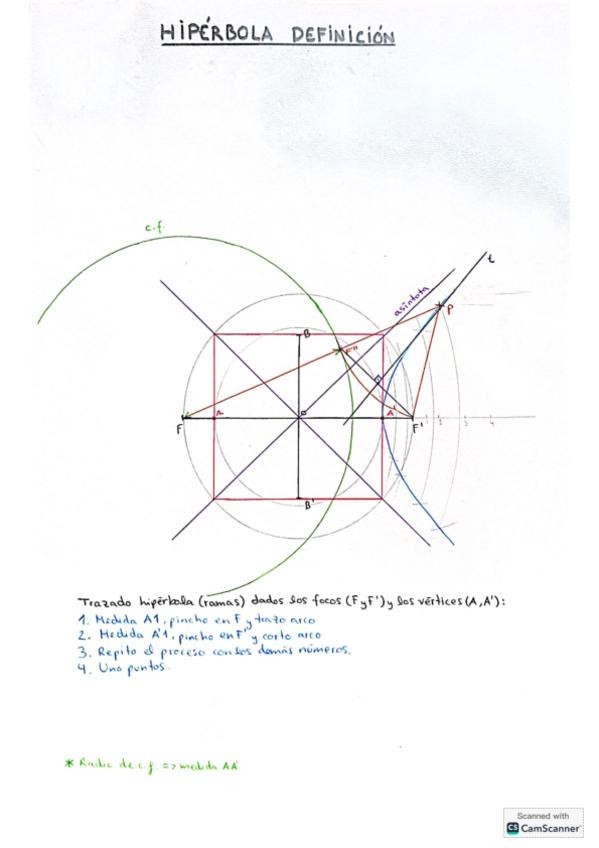 HIPÉRBOLA DEFINICIÓN
c.f.
t
asíntota
P
B
F''
O
F
A
A'
F'
1 2 3 4
B'
Trazado hipérbola (ramas) dados los focos (F y F') y los vértices (A, A'):
1. Medida A1, pincho en F y trazo arco
2. Medida A'1, pincho en F' y corto arco
3. Repito el proceso con los demás números.
4. Uno puntos.
* Radio de c.f. => medida AA'
Scanned with
CS CamScanner